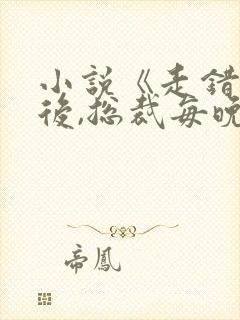 小說《走錯
後,総裁每晚
帝鳳